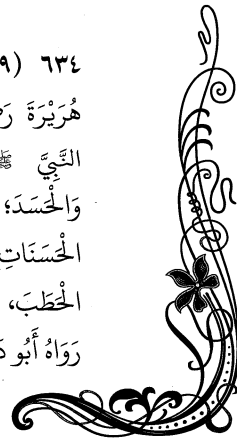 ٦٣٤ (٩
هُرَيْرَةَ
النَّبِيَّ ﷺ
وَالْحَسَدَ؛
الْحَسَنَاتِ
الْحَطَبَ،
رَوَاهُ أَبُو